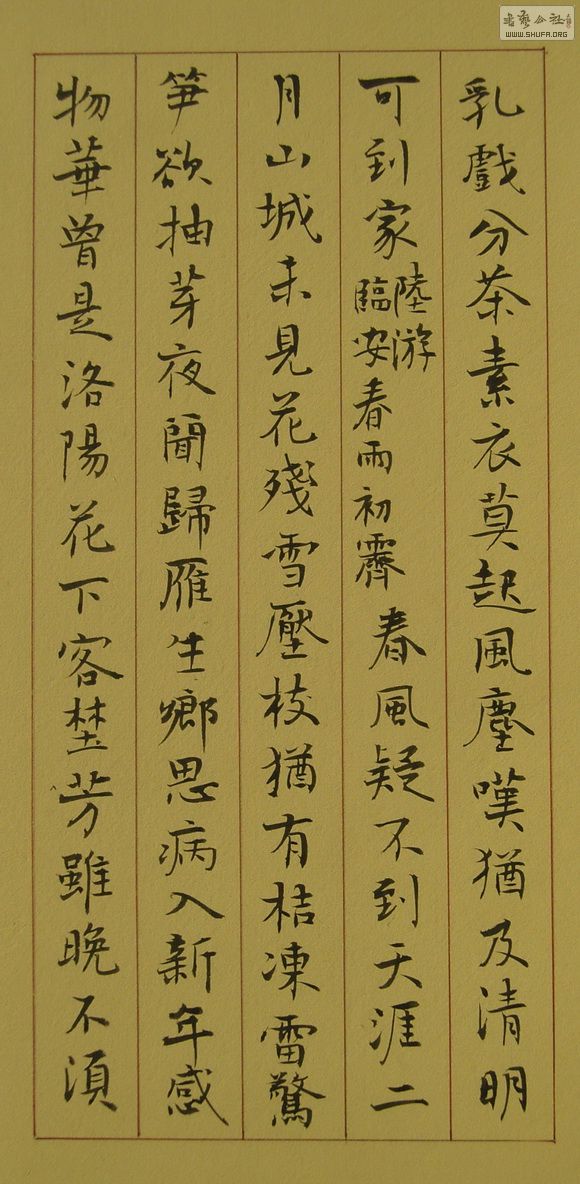 乳戲分茶素衣莫起風塵嘆猶及清明
可到家陸游臨安春雨初霽春風疑不到天涯二
月山城未見花殘雪壓枝猶有桔凍雷驚
笋欲抽芽夜聞歸雁生鄉思病入新年感
物華曾是洛陽花下客埜芳雖晚不須
書藝公社
WWW.SHUFA.ORG